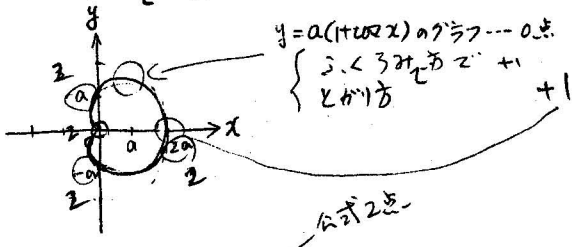 y
y=a(1+cosx)のグラフ…0点
ふくらみ方で +1
とがり方
+1
2
a
2
a
2a
x
-a
2
2
公式2点